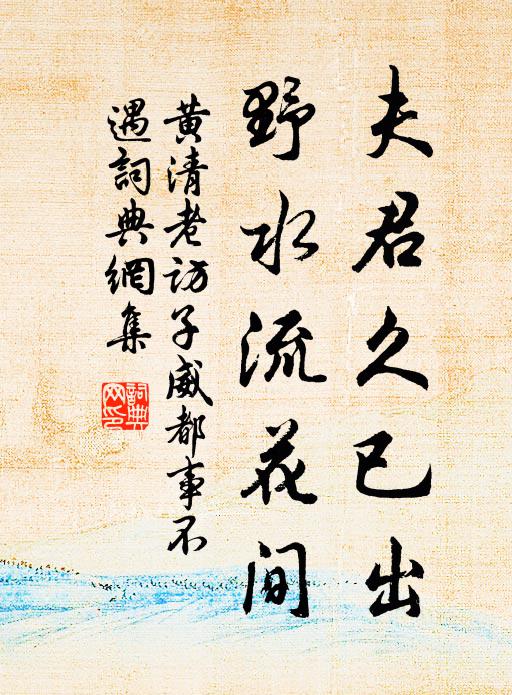 夫君久已出
野水流花间
黄清老访子威都事不
遇詞典網集
詞典
网印